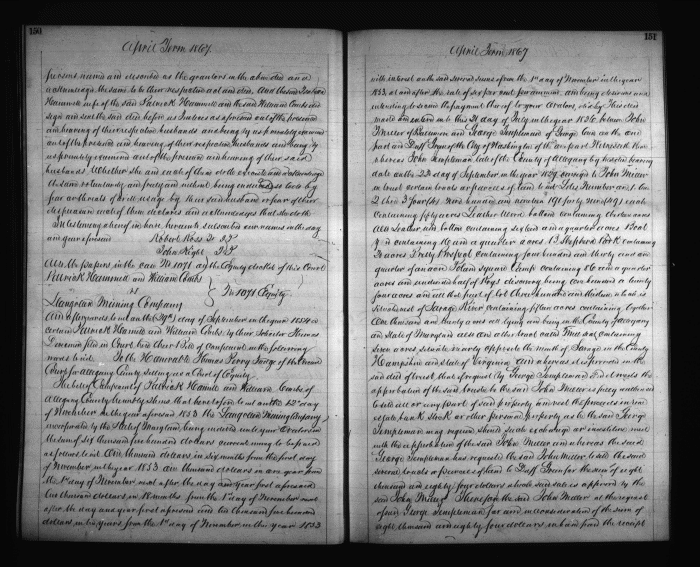 150
April Term 1867
persons named and described as the grantors in the above deed and
acknowledge the same to be their respective act and deed. And the said
Hammill wife of the said Patrick Hammill and the said William Combs did
sign and seal the said deed before us
and hearing of their respective husbands and being by us privately examined
out of the presence and hearing of their respective husbands and being by
us privately examined out of the presence and hearing of their said
husbands Whether she and each of them doth execute and acknowledge
the same voluntarily and freely and without being induced so to do by
fear or threats of or ill usage by their said husbands or fear of their
displeasure each of them declares and acknowledges that she doth
In testimony whereof we have hereunto subscribed our names on the day
and year aforesaid Robert Ross Jr J.P.
John Right J.P.
All the papers in the case No 1071 on the Equity docket of this Court
Patrick Hammill and William Combs
vs
No 1071 Equity
Llangollen Mining Company
And afterwards to wit on the 29th day of September in the year 1854 a
certain Patrick Hammill and William Combs by their Solicitor Thomas
Devecmon filed in Court here their Bill of Complaint in the following
words to wit. To the Honorable Thomas Perry Judge of the Circuit
Court for Allegany County sitting as a Court of Equity.
The bill of Complaint of Patrick Hammill and William Combs of
Allegany County humbly shews that heretofore to wit on the 12th day
of November in the year aforesaid 1853 the Llangollen Mining Company
incorporated by the State of Maryland, being indebted unto your Orators in
the sum of six thousand five hundred dollars current money to be paid
as follows to wit One thousand dollars in six months from the first day
of November in the year 1853 one thousand dollars in one year from
the 1st day of November next after the day and year first aforesaid
two thousand dollars in 18 months from the 1st day of November next
after the day and year first aforesaid and two thousand five hundred
dollars in two years from the 1st day of November in the year 1853
151
April Term 1867
with interest on the said several sums from the 1st day of November in the year
1853, at and after the rate of six per cent per annum, and being desirous and
intending to secure the payment thereof to your Orators, did by this deed
made and entered into this 21 day of July in the year 1836 between John
Miller of Baltimore and George Templeman of George Town on the one
part and Duff Green of the City of Washington of the other part Witnesseth that
whereas John Templeman late of the County of Allegany by his deed bearing
date on the 22d day of September in the year 1827 conveyed to John Miller
in trust certain tracts or parcels of land to wit Lots Number one 1 two
2 three 3 four (4) nine hundred and ninety one
each containing fifty acres Leather Wood bottom containing
acres Leather Wood bottom containing sixty six and a quarter acres Boat
Yard containing 86 and a quarter acres. 13 Shepherd Park containing
acres Pretty Prospect containing four hundred and thirty and one
quarter of an acre Poland square Camp containing 86 and a quarter
acres and undivided half of Ross discovery being one hundred &
four acres and all that part of lot Three hundred and thirteen which is
Southwest of Savage River containing fifteen acres containing together
One thousand and twenty acres all lying and being in the County of Allegany
and State of Maryland also one other tract called Free Seat containing
seven acres situate nearly opposite the mouth of Savage in the County
Hampshire and State of Virginia. And whereas it is provided in the
said deed of trust that if required by George Templeman & it meets the
approbation of the said trustee he the said John Miller is fully authorized
to sell all or any part of said property and vest the proceeds in real
estate, bank stock or other personal property as he the said George
Templeman may require should such exchange or investment meet
with the approbation of the said John Miller and whereas the said
George Templeman has requested the said John Miller to sell the said
several tracts or parcels of land to Duff Green for the sum of eight
thousand and eighty four dollars which said sale is approved by the
said John Miller Therefore the said John Miller at the request
of said George Templeman for and in consideration of the sum of
eight thousand and eighty four dollars in hand paid the receipt